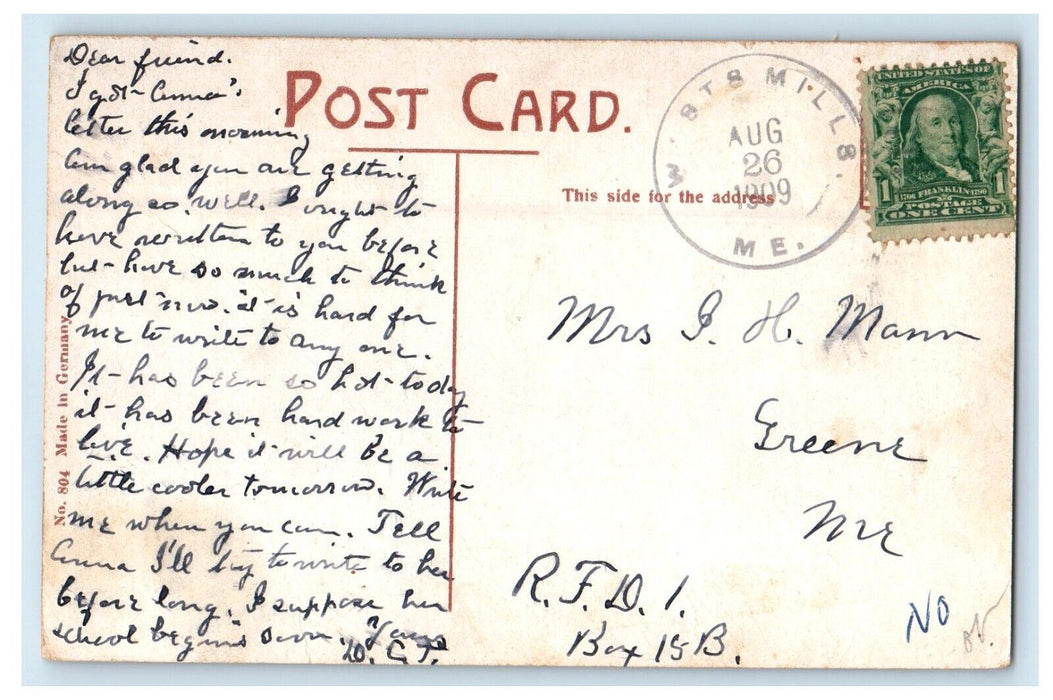 Dear friend.
I got Anna's
letter this morning
Am glad you are getting
along so well. I ought to
have written to you before
but have so much to think
of just now. it is hard for
me to write to any one.
It has been so hot today
it has been hard work to
live. Hope it will be a
little cooler tomorrow. Write
me when you can. Tell
Anna I'll try to write to her
before long. I suppose her
school begins soon. Yours
No. 804 Made in Germany
POST CARD.
This side for the address
STS MILLS.
AUG
26
1909
ME.
UNITED STATES OF
AMERICA
1 1706 FRANKLIN 1790 1
POSTAGE
ONE CENT
Mrs I. H. Mann
Greene
Me
R.F.D. 1.
Box 18B.
NO